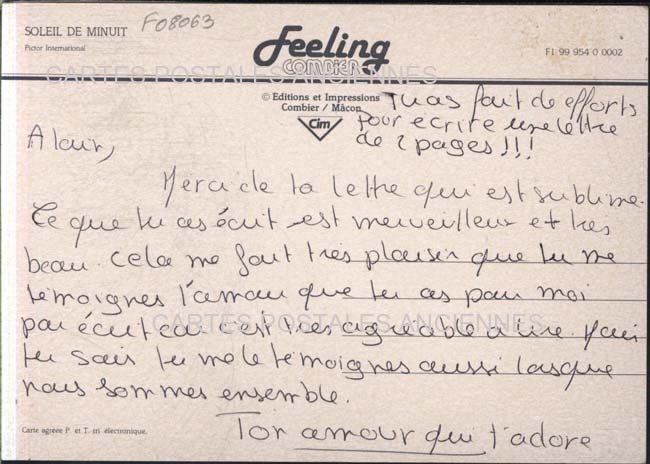 SOLEIL DE MINUIT
F08063
Pictor International
Feeling
COMBIER
F1 99 954 0 0002
CARTES POSTALES ANCIENNES
© Editions et Impressions
Combier / Mâcon
Cim
Tu as fait de efforts
pour ecrire une lettre
de 2 pages!!!
Alain,
Merci de ta lettre qui est sublime.
Ce que tu as écrit est merveilleux et très
beau. Cela me fait très plaisir que tu me
témoignes l'amour que tu as pour moi
par écrit car c'est très agréable à lire. Mais
tu sais tu me le témoignes aussi lorsque
nous sommes ensemble.
CARTES POSTALES ANCIENNES
Ton amour qui t'adore
Carte agréée P. et T. tri électronique.